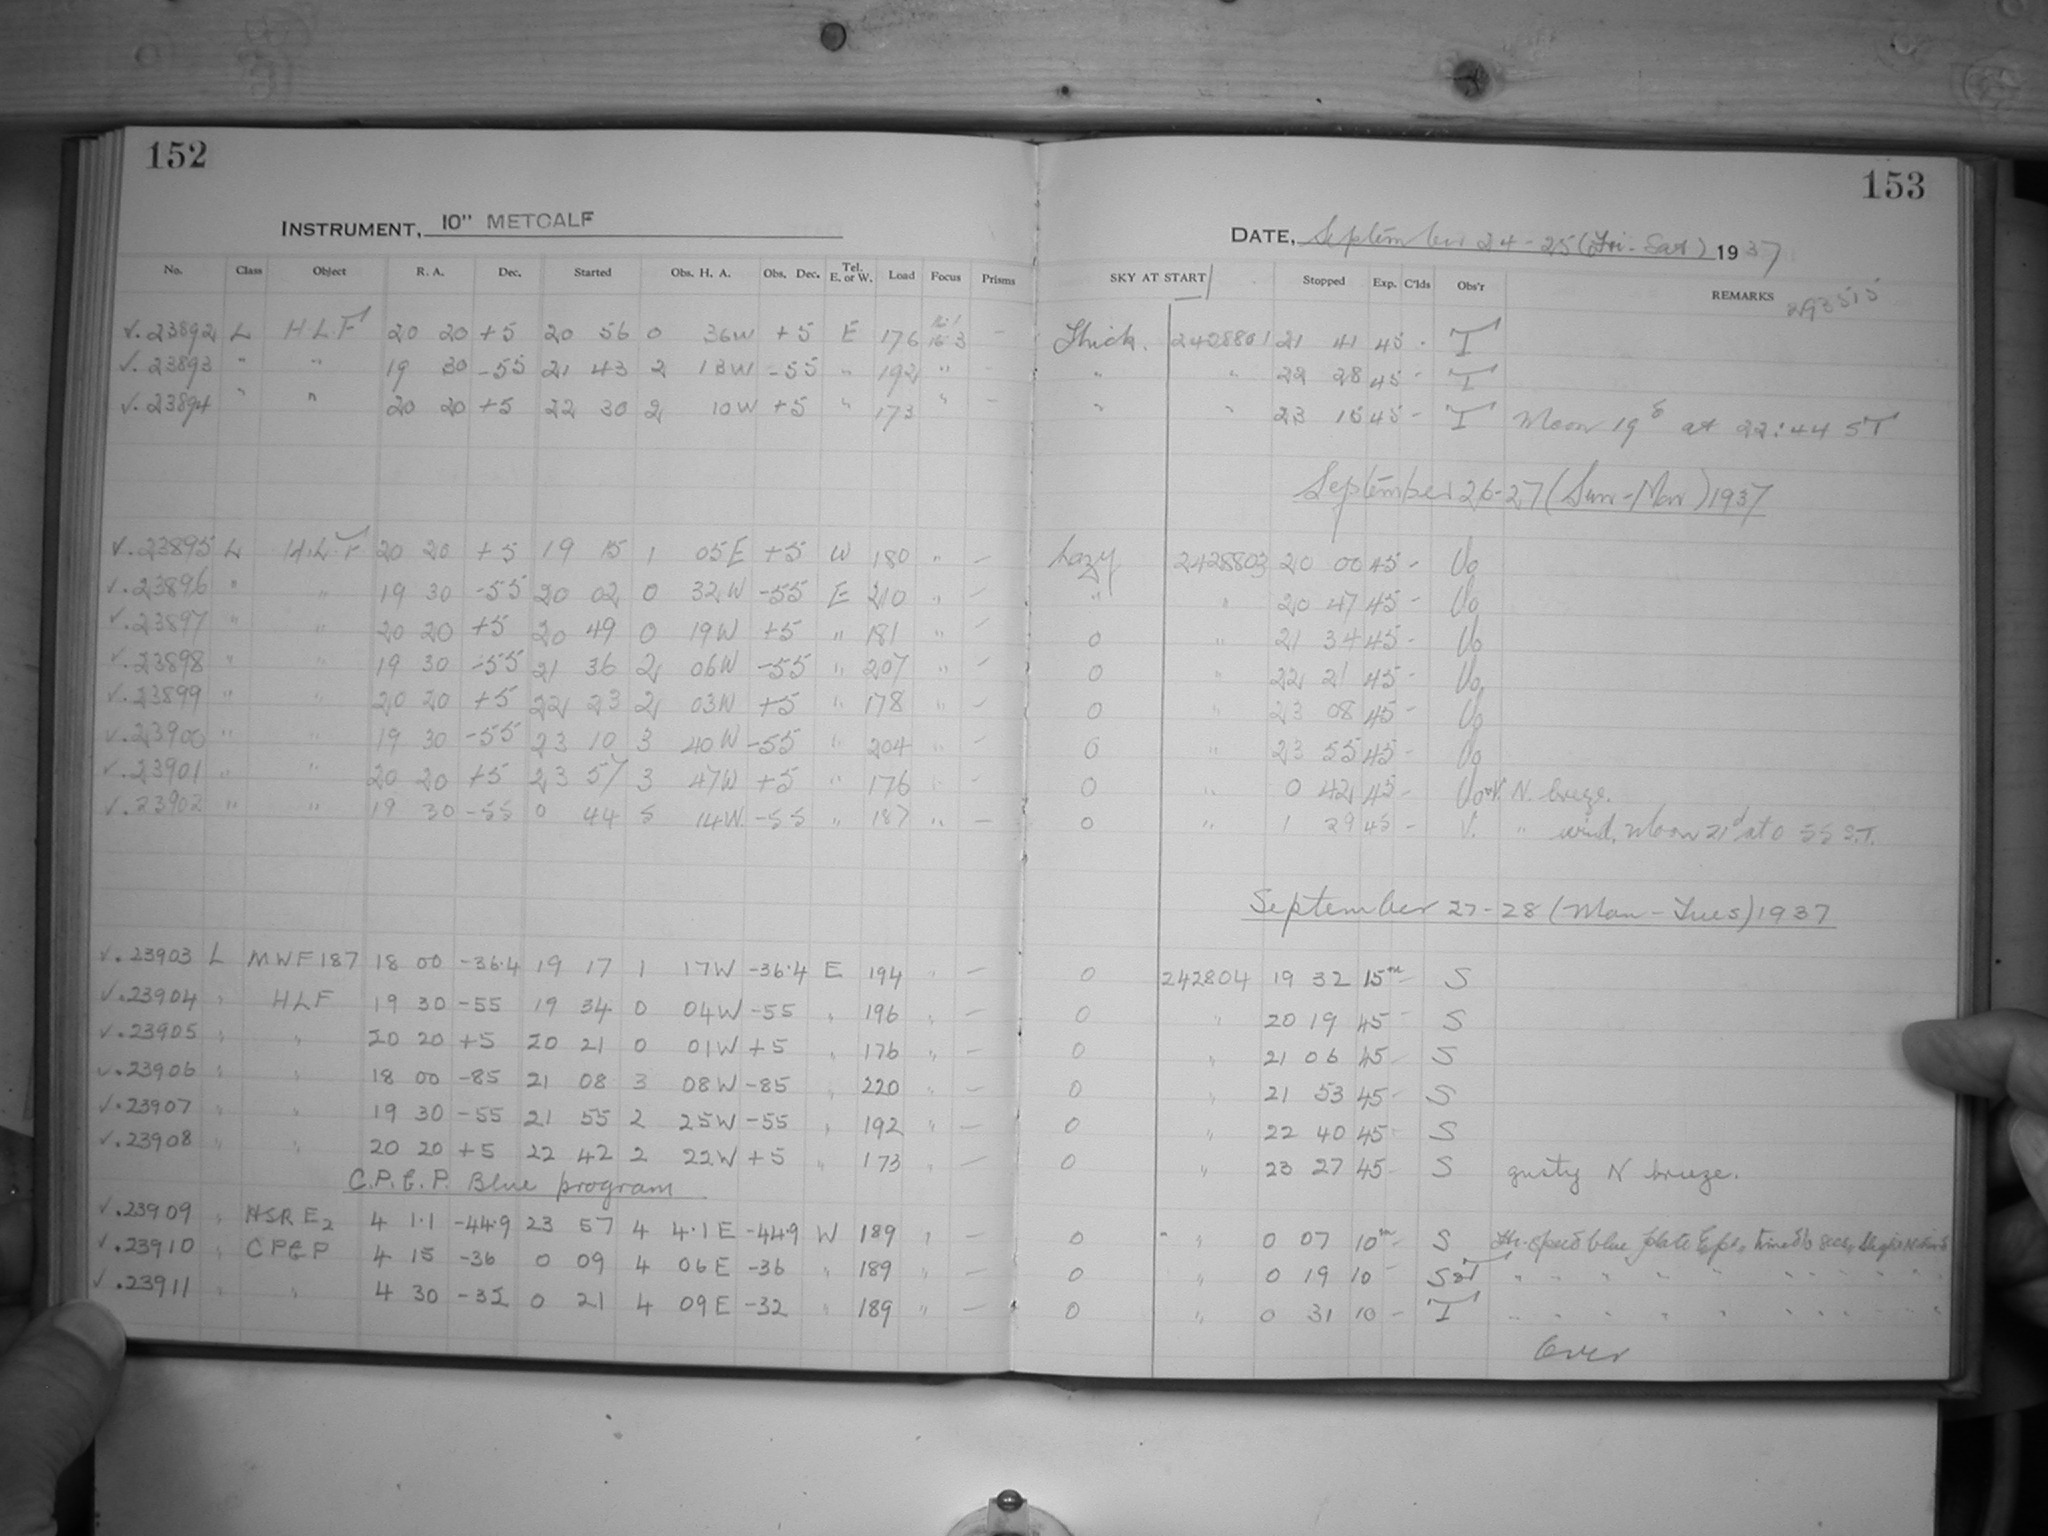 152
INSTRUMENT, 10" METCALF
No. Class Object R. A. Dec. Started Obs. H. A. Obs. Dec. Tel. E. or W. Load Focus Prisms
√.23892 L H L F 20 20 +5 20 56 0 36W +5 E 176 16.3 –
√.23893 " " 19 30 -55 21 43 2 13W -55 " 192 " –
√.23894 " " 20 20 +5 22 30 2 10W +5 " 173 " –
√.23895 L H.L F 20 20 +5 19 15 1 05E +5 W 180 " –
√.23896 " " 19 30 -55 20 02 0 32W -55 E 210 " –
√.23897 " " 20 20 +5 20 49 0 19W +5 " 181 " –
√.23898 " " 19 30 -55 21 36 2 06W -55 " 207 " –
√.23899 " " 20 20 +5 22 23 2 03W +5 " 178 " –
√.23900 " " 19 30 -55 23 10 3 40W -55 " 204 " –
√.23901 " " 20 20 +5 23 57 3 47W +5 " 176 " –
√.23902 " " 19 30 -55 0 44 5 14W -55 " 187 " –
√.23903 L MWF187 18 00 -36.4 19 17 1 17W -36.4 E 194 " –
√.23904 " HLF 19 30 -55 19 34 0 04W -55 " 196 " –
√.23905 " " 20 20 +5 20 21 0 01W +5 " 176 " –
√.23906 " " 18 00 -85 21 08 3 08W -85 " 220 " –
√.23907 " " 19 30 -55 21 55 2 25W -55 " 192 " –
√.23908 " " 20 20 +5 22 42 2 22W +5 " 173 " –
C.P.E.P. Blue program
√.23909 " HSR E2 4 1.1 -44.9 23 57 4 4.1E -44.9 W 189 " –
√.23910 " CPEP 4 15 -36 0 09 4 06E -36 " 189 " –
√.23911 " " 4 30 -32 0 21 4 09E -32 " 189 " –
153
DATE, September 24-25 (Fri-Sat) 1937
SKY AT START Stopped Exp. C'lds Obs'r REMARKS
Thick. 2428801 21 41 45 - T
" " 22 28 45 - T
" " 23 15 45 - T Moon 19d at 22:44 ST
September 26-27 (Sun-Mon) 1937
hazy 2428803 20 00 45 - Uo
" " 20 47 45 - Uo
0 " 21 34 45 - Uo
0 " 22 21 45 - Uo
0 " 23 08 45 - Uo
0 " 23 55 45 - Uo
0 " 0 42 45 - Uo N. breeze.
0 " 1 29 45 - " wind, Moon 21d at 0 55 S.T.
September 27-28 (Mon-Tues) 1937
0 242804 19 32 15m - S
0 " 20 19 45 - S
0 " 21 06 45 - S
0 " 21 53 45 - S
0 " 22 40 45 - S
0 " 23 27 45 - S gusty N breeze.
0 " 0 07 10m - S speed blue plate
0 " 0 19 10 - S&T " " " " " " " "
0 " 0 31 10 - T " " " " " " " "
Over